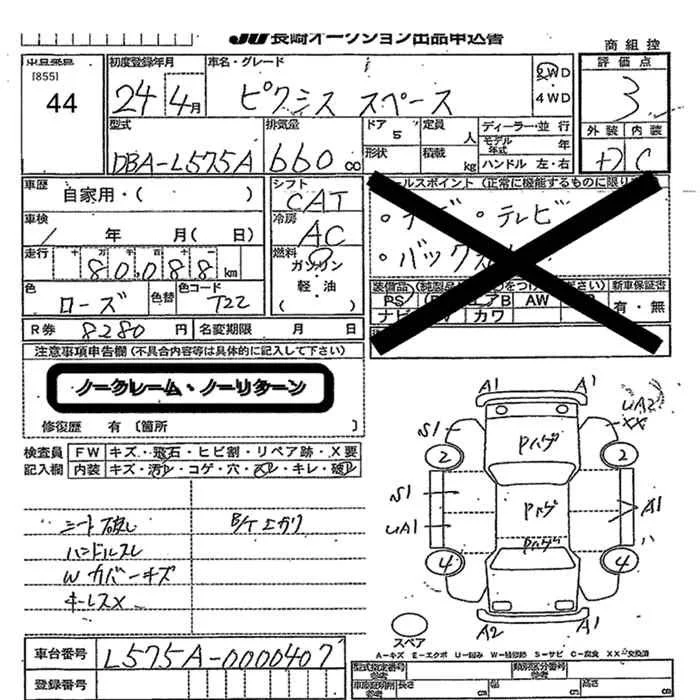 JU 長崎オークション出品申込書
商 組 控
出品番号
[855]
44
初度登録年月
24年 4月
車名・グレード
ピクシス スペース
2WD
・
4WD
評価点
3
外装 内装
+7 C
型式
DBA-L575A
排気量
660 cc
ドア 5
定員 人
形状
積載 kg
ディーラー・並 行
モデル年式 年
ハンドル 左・右
車歴
自家用・( )
シフト
CAT
セールスポイント (正常に機能するものに限り
・ナビ ・テレビ
・バック
車検
年 月( 日)
冷房
AC
走行 十 万 千 百 十 一
80,088 km
燃料
ガソリン
・
軽・油
( )
色
ローズ
色替
色コード
T22
新車保証書
有・無
PS
エアB
AW
ナビ
カワ
R券 8280 円
名変期限 月 日
注意事項申告欄 (不具合内容等は具体的に記入して下さい)
ノークレーム・ノーリターン
修復歴 有 〔箇所 〕
検査員
記入欄
FW キズ・飛石・ヒビ割・リペア跡・X要
内装 キズ・汚レ・コゲ・穴・スレ・キレ・破レ
シート破レ
B/T エガリ
ハンドルスレ
Wカバーキズ
キーレスX
A1 A1
UA2
XX
S1
Pハゲ
2 2
S1
Pハゲ
A1
UA1
Pハゲ
4 4
A2 A1
スペア
A-キズ E-エクボ U-凹み W-補修跡 S-サビ C-腐食 XX-交換済
車台番号
L575A-0000407
登録番号
型式指定番号
参考
類別区分番号
参考
長さ
幅
高さ